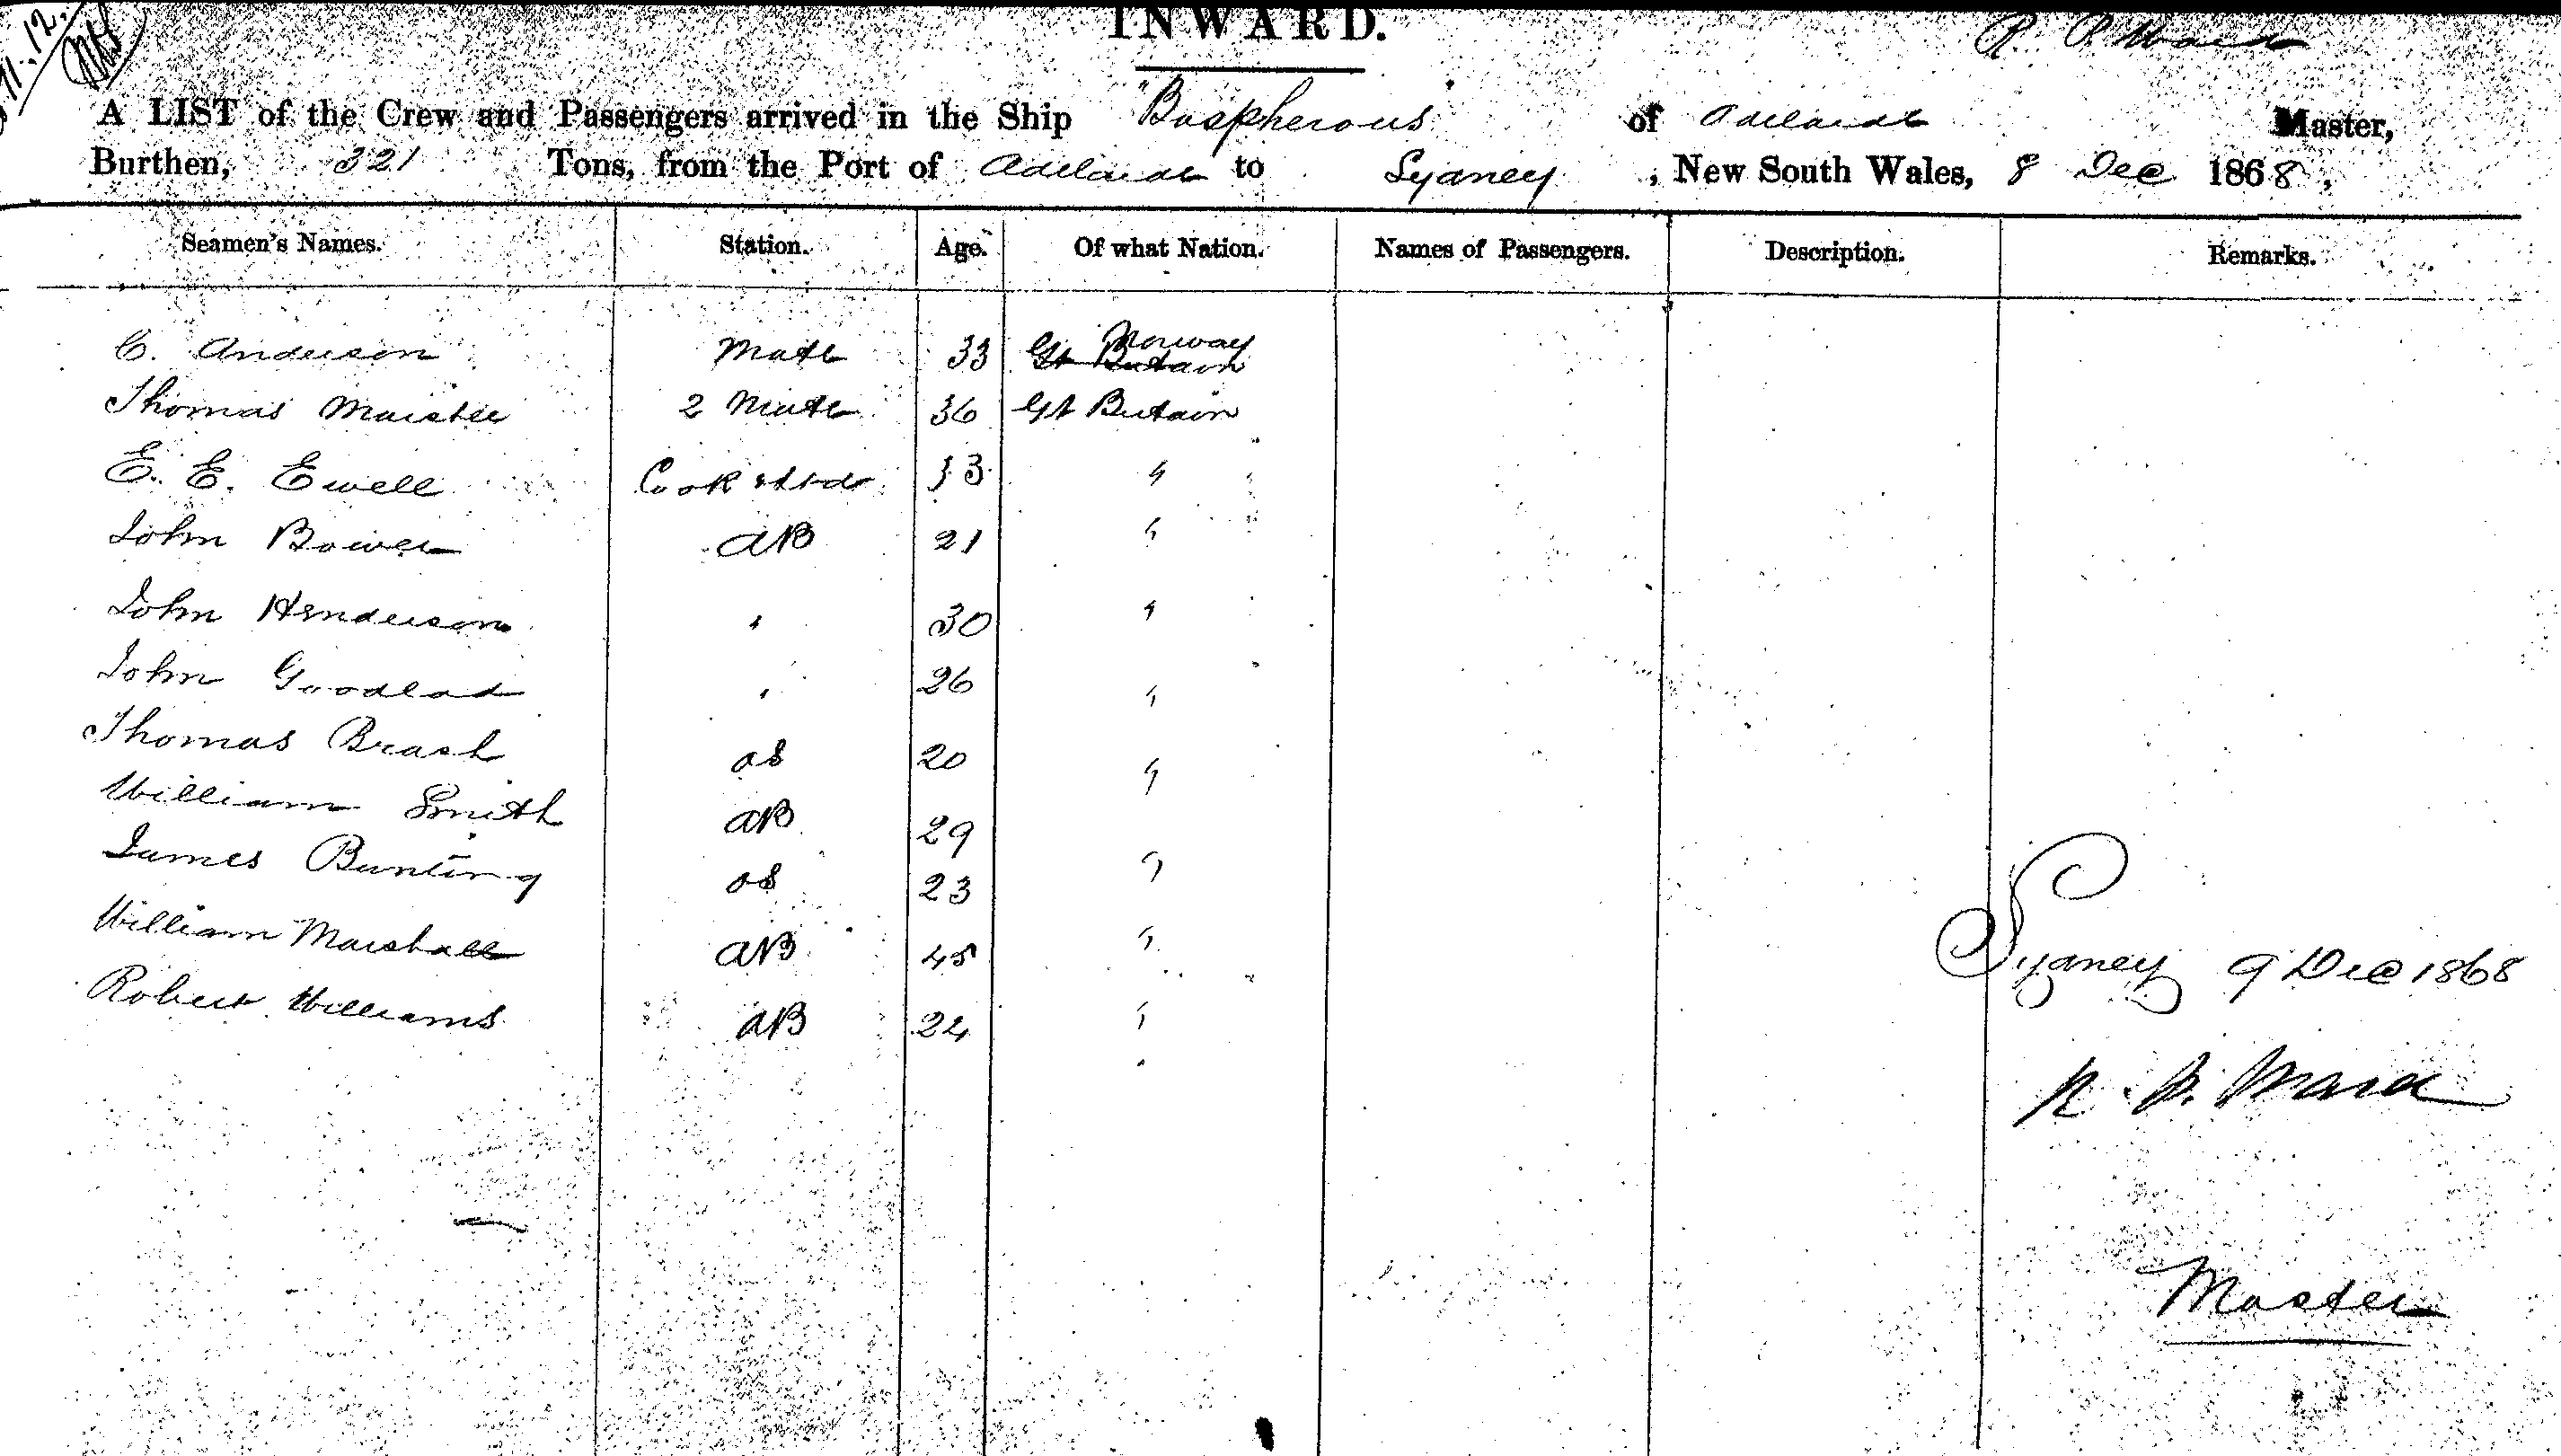 INWARD.
11.12.
A LIST of the Crew and Passengers arrived in the Ship "Bospherous" of Adelaide R. P. Ward Master,
Burthen, 321 Tons, from the Port of Adelaide to Sydney, New South Wales, 8 Dec 1868,
Seamen's Names. Station. Age. Of what Nation. Names of Passengers. Description. Remarks.
C. Anderson Mate 33 Gt Britain Norway
Thomas 2 Mate 36 Gt Britain
E. E. Ewell Cook & Std 33 "
John Bower AB 21 "
John Henderson " 30 "
John Goodlad " 26 "
Thomas Brash OS 20 "
William Smith AB 29 "
James Bunting OS 23 "
William Marshall AB 45 "
Robert Williams AB 24 "
Sydney 9 Dec 1868
R. P. Ward
Master